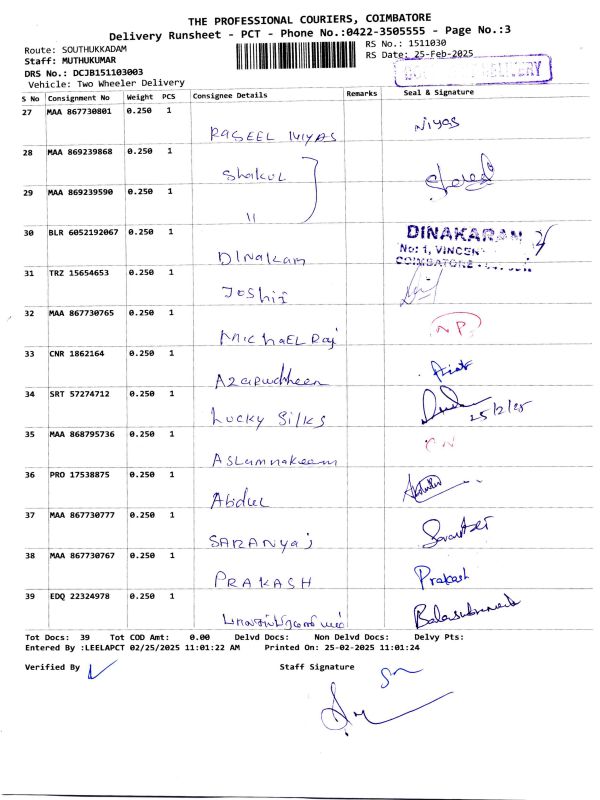 THE PROFESSIONAL COURIERS, COIMBATORE
Delivery Runsheet - PCT - Phone No.:0422-3505555 - Page No.:3
Route: SOUTHUKKADAM
RS No.: 1511030
Staff: MUTHUKUMAR
RS Date: 25-Feb-2025
DRS No.: DCJB151103003
DELIVERY
Vehicle: Two Wheeler Delivery
S No Consignment No Weight PCS Consignee Details Remarks Seal & Signature
27 MAA 867730801 0.250 1 RASEEL NIYAS Niyas
28 MAA 869239868 0.250 1 Shakul
29 MAA 869239590 0.250 1 "
30 BLR 6052192067 0.250 1 Dinakam DINAKARAN
No: 1, VINCENT
COIMBATORE
31 TRZ 15654653 0.250 1 Joshi
32 MAA 867730765 0.250 1 Michael Raj NP
33 CNR 1862164 0.250 1 Azarudheen
34 SRT 57274712 0.250 1 Lucky Silks 25/2/25
35 MAA 868795736 0.250 1 Aslamnakeem
36 PRO 17538875 0.250 1 Abdul
37 MAA 867730777 0.250 1 SARANYA
38 MAA 867730767 0.250 1 PRAKASH Prakash
39 EDQ 22324978 0.250 1
Tot Docs: 39 Tot COD Amt: 0.00 Delvd Docs: Non Delvd Docs: Delvy Pts:
Entered By :LEELAPCT 02/25/2025 11:01:22 AM Printed On: 25-02-2025 11:01:24
Verified By Staff Signature